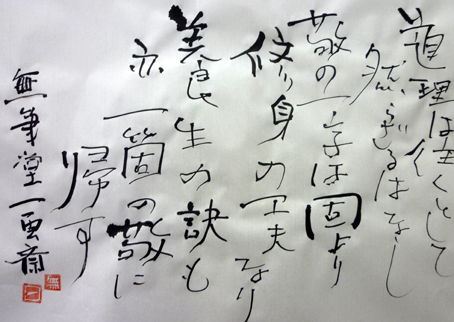 道理は往くとして
然らざるはなし
敬の一字は固より
修身の工夫なり
養生の訣も
亦一箇の敬に
帰す
無筆堂一画斎
無